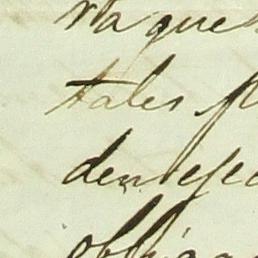 ra que
tales p
den ejec
obliga